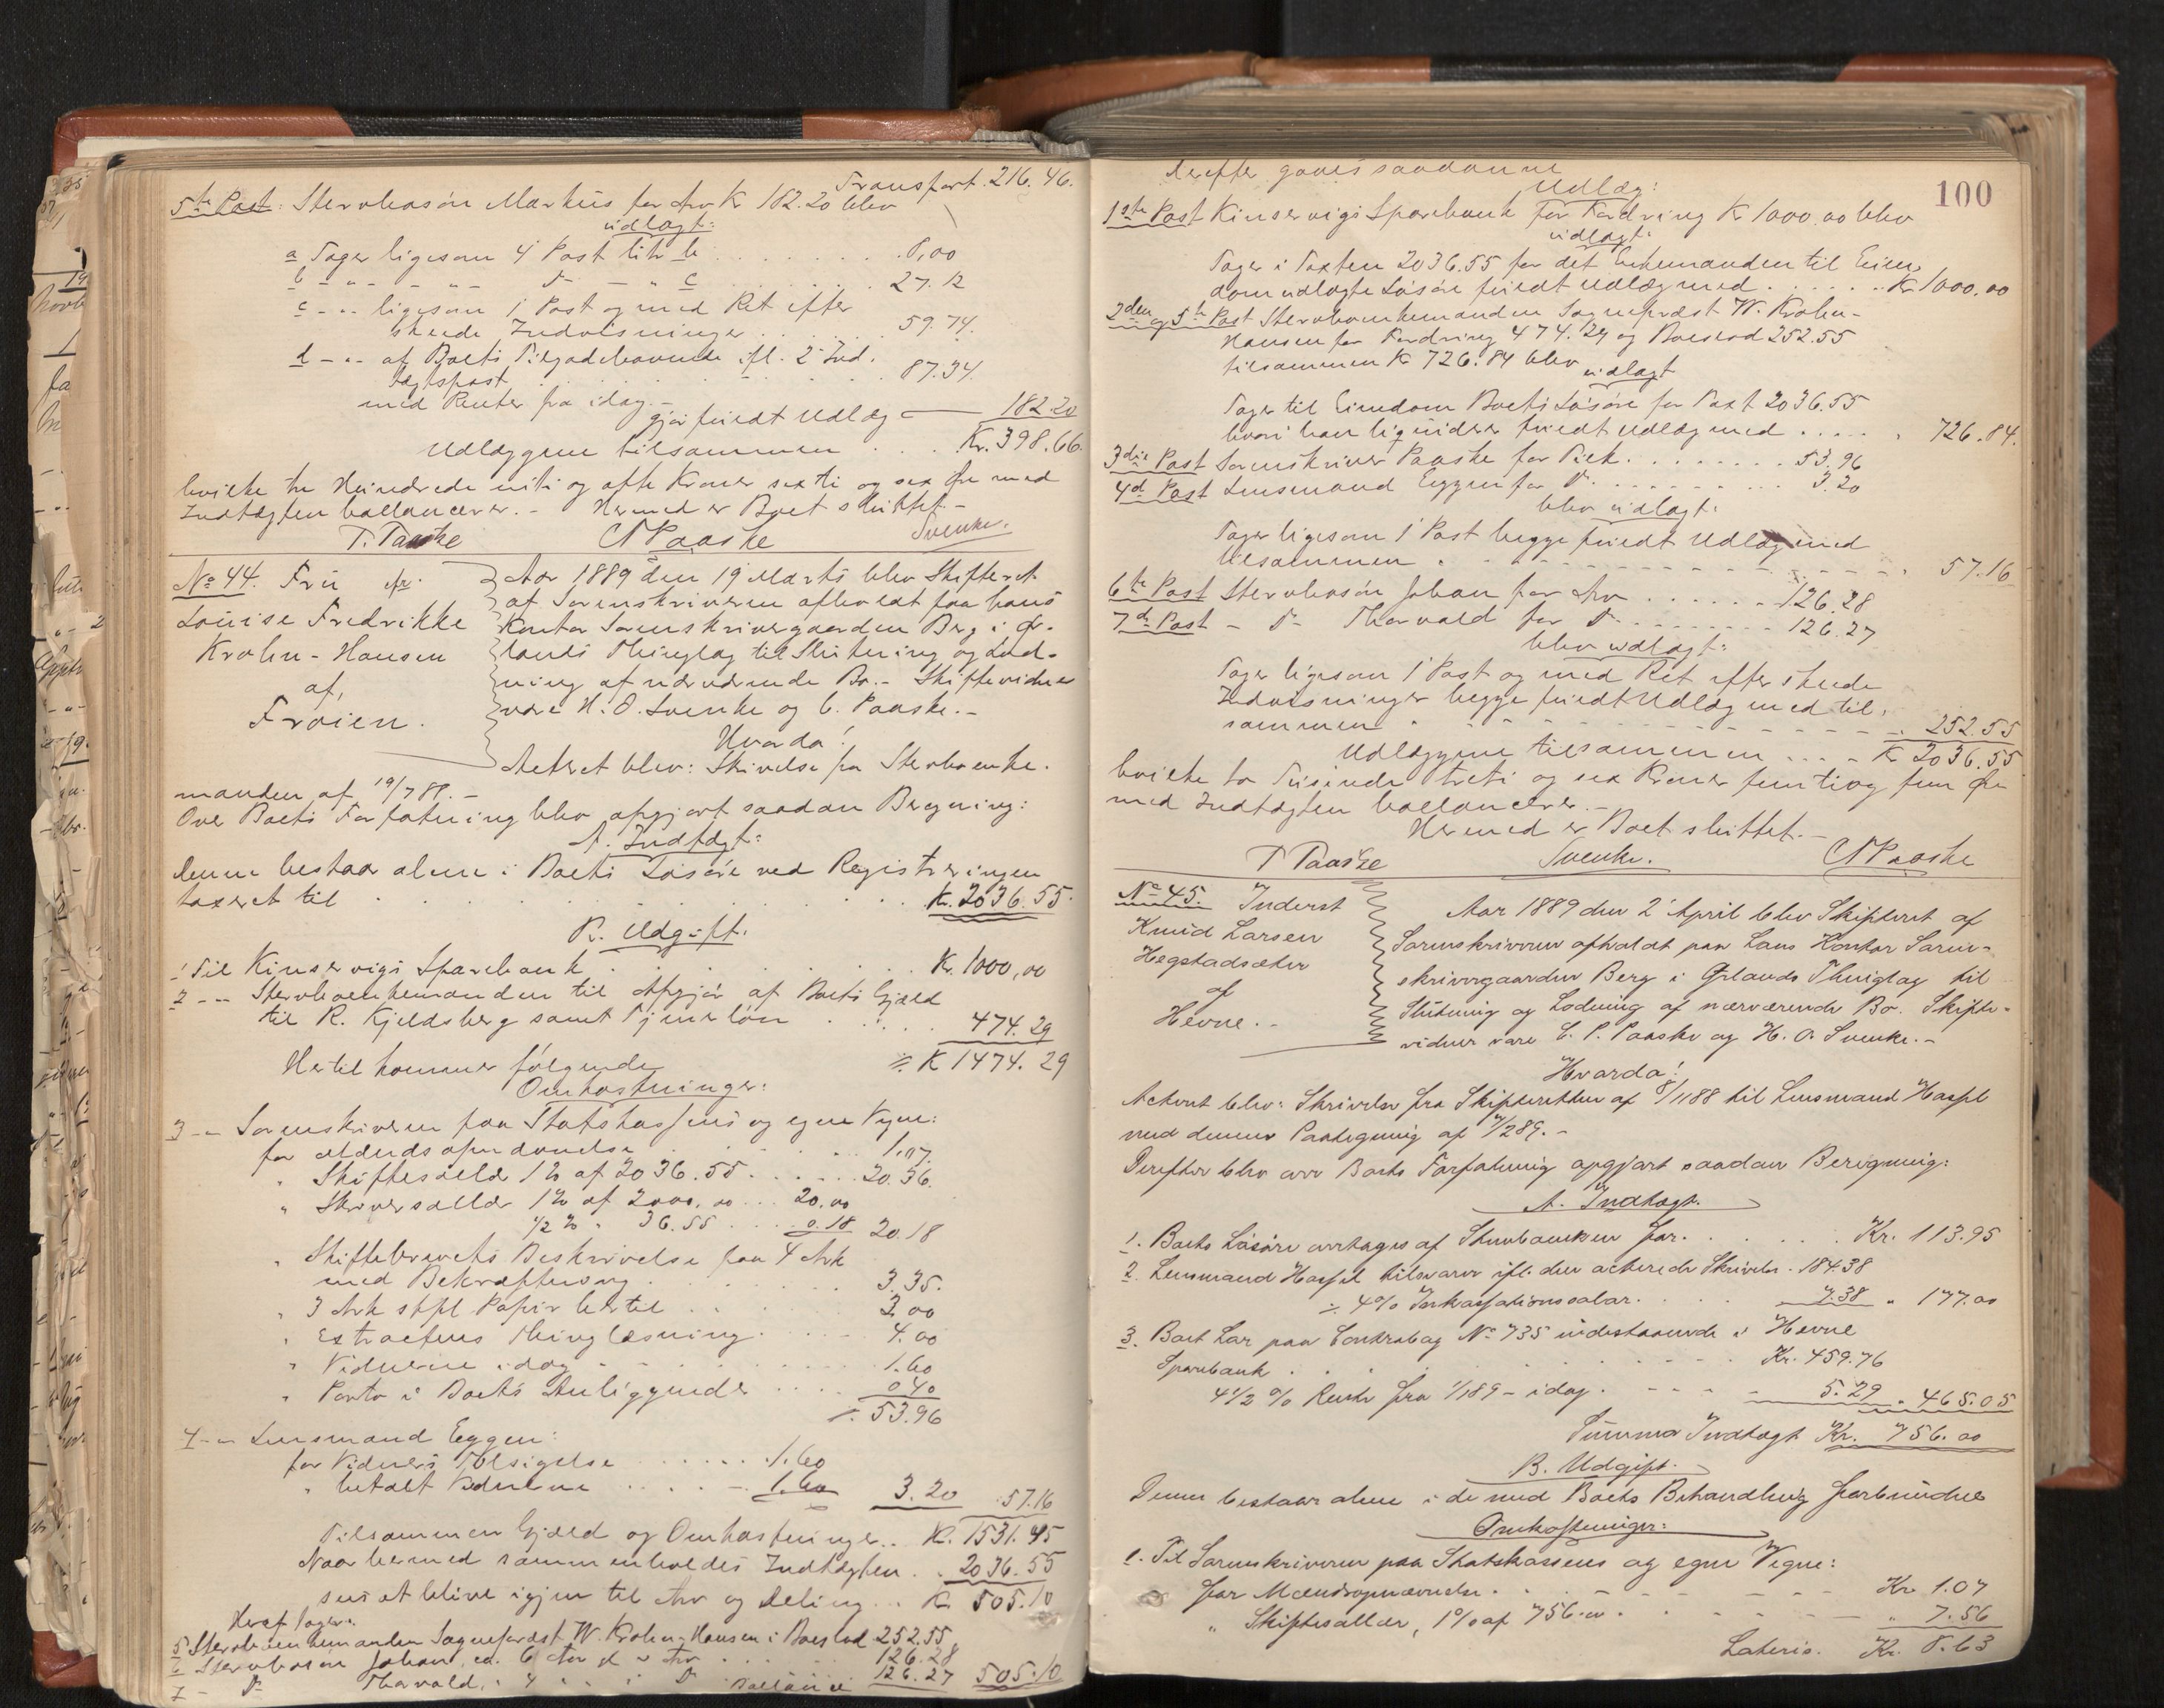 Transport. 216.46.
5te Post: Stervbosøn Markus for Arv K 182.20 blev
udlagt:
a Tager ligesom 4 Post litr b . . . . . . . 8,00
b - " - " - " - Do - " c . . . . . . . 27.12
c - " ligesom 1 Post og med Ret efter
skeede Indvisninger . . . . . 59.74.
d - " af Boets Tilgodehavende ifl. 2 Ind-
tægtspost . . . . . . 87.34.
med Renter fra idag. -
gjør fuldt Udlæg — 182.20
Udlæggene tilsammen . . . Kr. 398.66.
hvilke tre Hundrede niti og otte Kroner sexti og sex Øre med
Indtægten ballancerer. - Hermed er Boet sluttet. -
T. Paaske C P Paaske Svenke.
No 44. Fru
Louise Fredrikke
Krohn-Hansen
af
Frøien.
Aar 1889 den 19 Marts blev Skifteret
af Sorenskriveren afholdt paa hans
Kontor Sorenskrivergaarden Berg i Ør-
lands Thinglag til Slutning og Lod-
ning af nærværende Bo. - Skiftevidner
vare H. O. Svenke og C. Paaske. -
Hvorda!
Acteret blev: Skrivelse fra Stervboenke-
manden af 19/7 88. -
Over Boets Forfatning blev opgjort saadan Beregning:
A. Indtægt:
Denne bestaar alene i Boets Løsøre ved Registreringen
taxeret til . . . . . . . . . Kr. 2036.55.
B. Udgift.
1 Til Kinservigs Sparebank . . . . . . . Kr. 1000,00
2 - " Stervboenkemanden til Afgjør af Boets Gjæld
til R. Kjeldsberg samt Tjenerløn . . . . . 474.29
K 1474.29
Hertil kommer følgende
Omkostninger:
3 - " Sorenskriveren paa Statskassens og egne Vegne:
for Mændsopnævnelse . . . . . 1.07.
" Skiftesallær 1% af 2036.55 . . . . . 20.36.
" Skriversallær 1% af 2000,00 . . 20,00
1/2 % " 36.55 . . . 0.18 20.18
" Skiftebrevets Beskrivelse paa 4 Ark
med Bekræftelse og . . . . . 3.35.
" 3 Ark stpl Papir hertil . . . . 3.00
" Extractens Thinglæsning . . . . 4.00
" Vidnerne idag . . . . . . . 1.60
" Porto i Boets Anliggender . . . . 0 40
53.96
4 - " Lensmand Eggen:
for Vidners Tilsigelse . . . . . 1.60
" betalt Vidnerne . . . . . 1.60 3.20 57.16
Tilsammen Gjæld og Omkostninger . . K. 1531.45
Naar hermed sammenholdes Indtægten . . 2036.55
sees at blive igjen til Arv og Deling . . . K 505.10
Heraf tager:
5 Stervboenkemanden Sognepræst W. Krohn-Hansen i Boeslod 252.55
6 Stervbosøn Johan, ca. 6 Aar gl. i Arv . . . 126.28
7 - Do Thorvald, " 4 " " i Do Ballance 126.27 505.10
100
Derefter gaves saadanne
Udlæg:
1ste Post Kinservigs Sparebank for Fordring K 1000.00 blev
udlagt:
Tager i Taxten 2036.55 for det Enkemanden til Eien-
dom udlagte Løsøre fuldt Udlæg med . . . . . Kr. 1000.00
2den og 5te Post Stervboenkemanden Sognepræst W. Krohn-
Hansen for Fordring 474.29 og Boeslod 252.55
tilsammen K 726.84 blev udlagt
Tager til Eiendom Boets Løsøre for Taxt 2036.55
hvori han liqviderer fuldt Udlæg med . . . . . 726.84.
3die Post Sorenskriver Paaske for Tilk. . . . . . . . 53.96
4de Post Lensmand Eggen for Do . . . . . . . 3.20
blev udlagt:
Tager ligesom 1 Post begge fuldt Udlæg med
tilsammen . . . . . . . . . . . 57.16
6te Post Stervbosøn Johan for Arv . . . . . . 126.28
7de Post - Do - Thorvald for Do . . . . . . . 126.27
blev udlagt:
Tager ligesom 1 Post og med Ret efter skeede
Indvisninger begge fuldt Udlæg med til-
sammen . . . . . . . . . . 252.55
Udlæggene tilsammen . . . . K 2036.55
hvilke to Tusinde treti og sex Kroner femti og fem Øre
med Indtægten ballancerer. -
Hermed er Boet sluttet. -
T Paaske Svenke. C P Paaske
No 45. Inderst
Knud Larsen
Hegstadsæter
af
Hevne. -
Aar 1889 den 2 April blev Skifteret af
Sorenskriveren afholdt paa hans Kontor Soren-
skrivergaarden Berg i Ørlands Thinglag til
Slutning og Lodning af nærværende Bo. Skifte-
vidner vare C. P. Paaske og H. O. Svenke. -
Hvorda!
Acteret blev: Skrivelse fra Skifteretten af 8/11 88 til Lensmand Hasfel
med dennes Paategning af /2 89. -
Derefter blev over Boets Forfatning opgjort saadan Beregning:
A. Indtægt.
1. Boets Løsøre overtages af Stervboenken for . . . . . . Kr. 113.95
2. Lensmand Hasfel tilsvarer ifl. den acterede Skrivelse . 184.38
÷ 4% Inkassationssalær . . . . 7.38 " 177.00
3. Boet har paa Contrabog No 735 indestaaende i Hevne
Sparebank . . . . . . . . . . Kr. 459.76
4 1/2 % Rente fra 1/1 89 - idag . . . . . 5.29 " 465.05
Summa Indtægt Kr. 756.00
B. Udgift.
Denne bestaar alene i de med Boets Behandling forbundne
Omkostninger:
1. Til Sorenskriveren paa Statskassens og egne Vegne:
for Mændsopnævnelse . . . . . . . . Kr 1.07
" Skiftesallær, 1% af 756.00 . . . . . . " 7.56
Lateris. Kr. 8.63